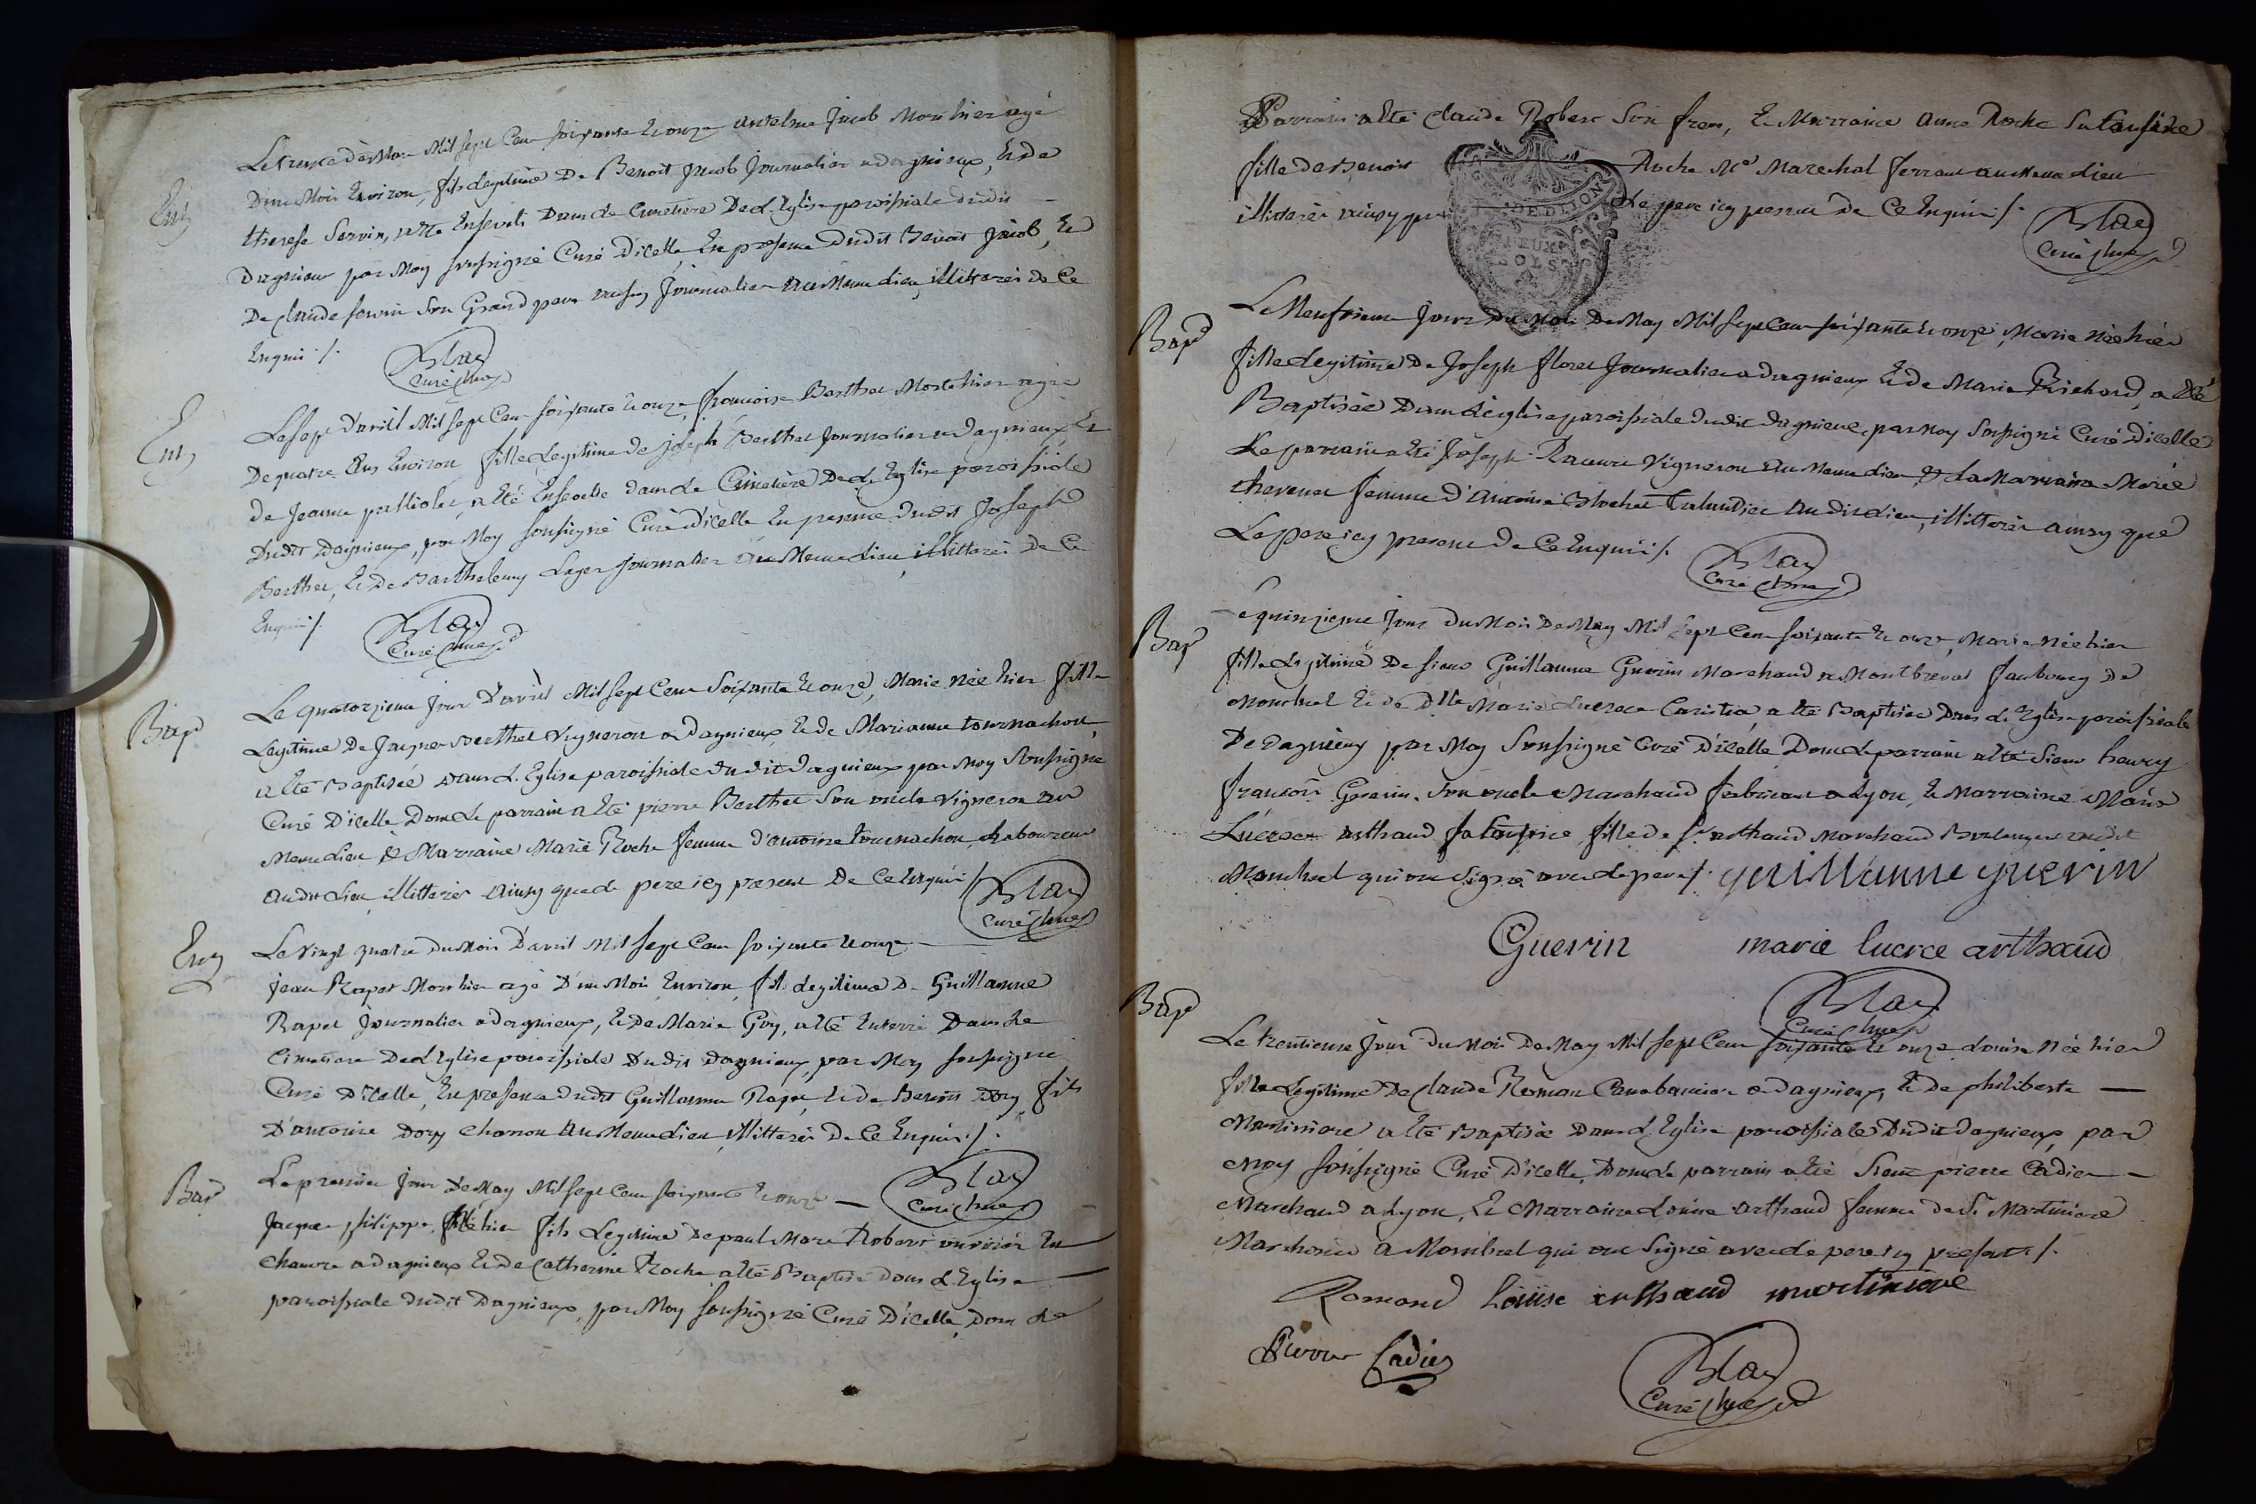 Ent
Le trente de Mars Mil sept Cen soixante et onze Antelme Jacob Mort hier agé
D'un Mois Environ, fils Legitime De Benoit Jacob Journalier a dagnieux, et de
therese Servin, a Eté Enseveli Dans Le Cimetiere De L'Eglise paroissiale dudit
Dagnieux par Moy soussigné Curé D'icelle, En presence Dudit Benoit Jacob, Et
De Claude servin Son Grand pere aussy Journalier au Meme dieu, illitterés de Ce
Enquis /.
Blay
Curé
Ent
Le sept d'avril Mil sept Cen soixante et onze, francoise Berthet Morte hier agée
De quatre ans Environ fille Legitime de joseph Berthet Journalier a dagnieux, Et
de Jeanne, a Eté Ensevelie dans Le Cimetiere De L'Eglise paroissiale
Dudit Dagnieux, par Moy soussigné Curé D'icelle En presence dudit Joseph
Berthet, Et De Barthelemy Leger Journalier au Meme Lieu illitterés De Ce
Enquis /.
Blay
Curé
Bap
Le quatorzieme Jour D'avril Mil sept Cen Soixante et onze, Marie Née hier fille
Legitime De Jacques Berthet Vigneron a Dagnieux, Et de Marianne tournachon,
a Eté Baptisée Dans L'Eglise paroissiale dudit dagnieux par Moy Soussigné
Curé D'icelle Dont Le parrain a Eté pierre Berthet Son oncle Vigneron au
Meme Lieu & Marraine Marie Roche femme d'antoine tournachon, Laboureur
audit Lieu illitterés ainsy que le pere icy present De Ce Enquis /.
Blay
Curé
Ent
Le Vingt quatre du Mois D'avril Mil sept Cen soixante et onze
jean Rapet Mort hier agé D'un Mois Environ, fils Legitime De Guillaume
Rapet Journalier a dagnieux, Et De Marie Goy, a Eté Enterré Dans Le
Cimetiere De L'Eglise paroissiale Dudit Dagnieux, par Moy soussigné
Curé D'icelle, En presence dudit Guillaume Rapet, Et de Benoit Dory fils
D'antoine Dory au Meme Lieu, illitterés De Ce Enquis /.
Blay
Curé
Bap
Le premier Jour De May Mil sept Cen soixante et onze
Jacques philippe, Né hier fils Legitime De paul Marc Robert ouvrier En
Chanvre a dagnieux Et de Catherine Roche a Eté Baptisé dans L'Eglise
paroissiale dudit Dagnieux, par Moy soussigné Curé D'icelle, Dont Le
Parrain a Eté Claude Robert Son frere, Et Marraine Anne Roche
fille de Benoit Roche Me Marechal ferrant au Meme Lieu
illitterés ainsy que Le pere icy present De Ce Enquis /.
DE LION
DEUX
SOLS
Blay
Curé
Bap
Le Neufvieme Jour Du Mois De May Mil sept Cen soixante et onze, Marie Née hier
fille Legitime De Joseph floret Journalier a dagnieux Et de Marie Richard, a Eté
Baptisée Dans L'eglise paroissiale dudit Dagnieux, par Moy Soussigné Curé D'icelle
Le parrain a Eté Joseph Vigneron au Meme Lieu, & La Marraine Marie
thevenet femme d'Antoine Blochet audit Lieu, illitterés ainsy que
Le pere icy present De Ce Enquis /.
Blay
Curé
Bap
Le quinzieme Jour du Mois De May Mil sept Cen soixante et onze, Marie Née hier
fille Legitime De sieur Guillaume Guerin Marchand a Faubourg De
Monluel Et de Dlle Marie Lucrece, a Eté Baptisée Dans L'Eglise paroissiale
De Dagnieux par Moy Soussigné Curé D'icelle Dont Le parrain a Eté Sieur henry
françois Guerin Son oncle Marchand fabricant a Lyon, Et Marraine Marie
Lucrece arthaud sa Cousine fille de Sr arthaud Marchand Boulanger audit
Monluel qui ont signé avec Le pere /. guillaume guerin
Guerin marie lucrece arthaud
Blay
Curé
Bap
Le trentieme Jour du Mois De May Mil sept Cen soixante et onze Louise Née hier
fille Legitime De Claude Roman a dagnieux, Et De philiberte
Martiniere a Eté Baptisée Dans L'Eglise paroissiale Dudit dagnieux, par
Moy soussigné Curé D'icelle, Dont Le parrain a Eté Sieur pierre Cadier
Marchand a Lyon, Et Marraine Louise arthaud femme de Sr Martiniere
Marchand a Monluel qui ont signé avec Le pere icy present /.
Romand Louise arthaud martiniere
Pierre Cadier
Blay
Curé